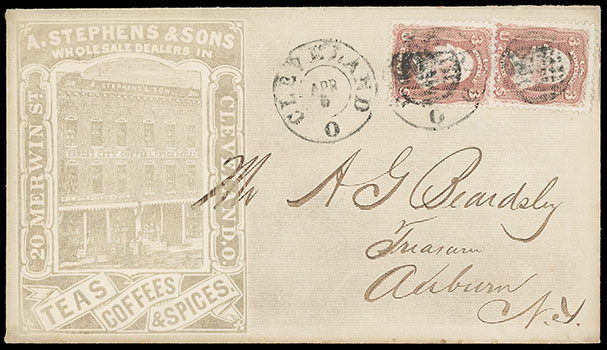 A. STEPHENS & SONS
WHOLESALE DEALERS IN
20 MERWIN ST.
CLEVELAND, O.
A. STEPHENS & SON
FOREST CITY COFFEE & SPICE MILLS
TEAS
COFFEES
& SPICES.
CLEVELAND
APR
O
3
3
U
S
Mr A G Beardsley
Treasurer
Auburn
N.Y.